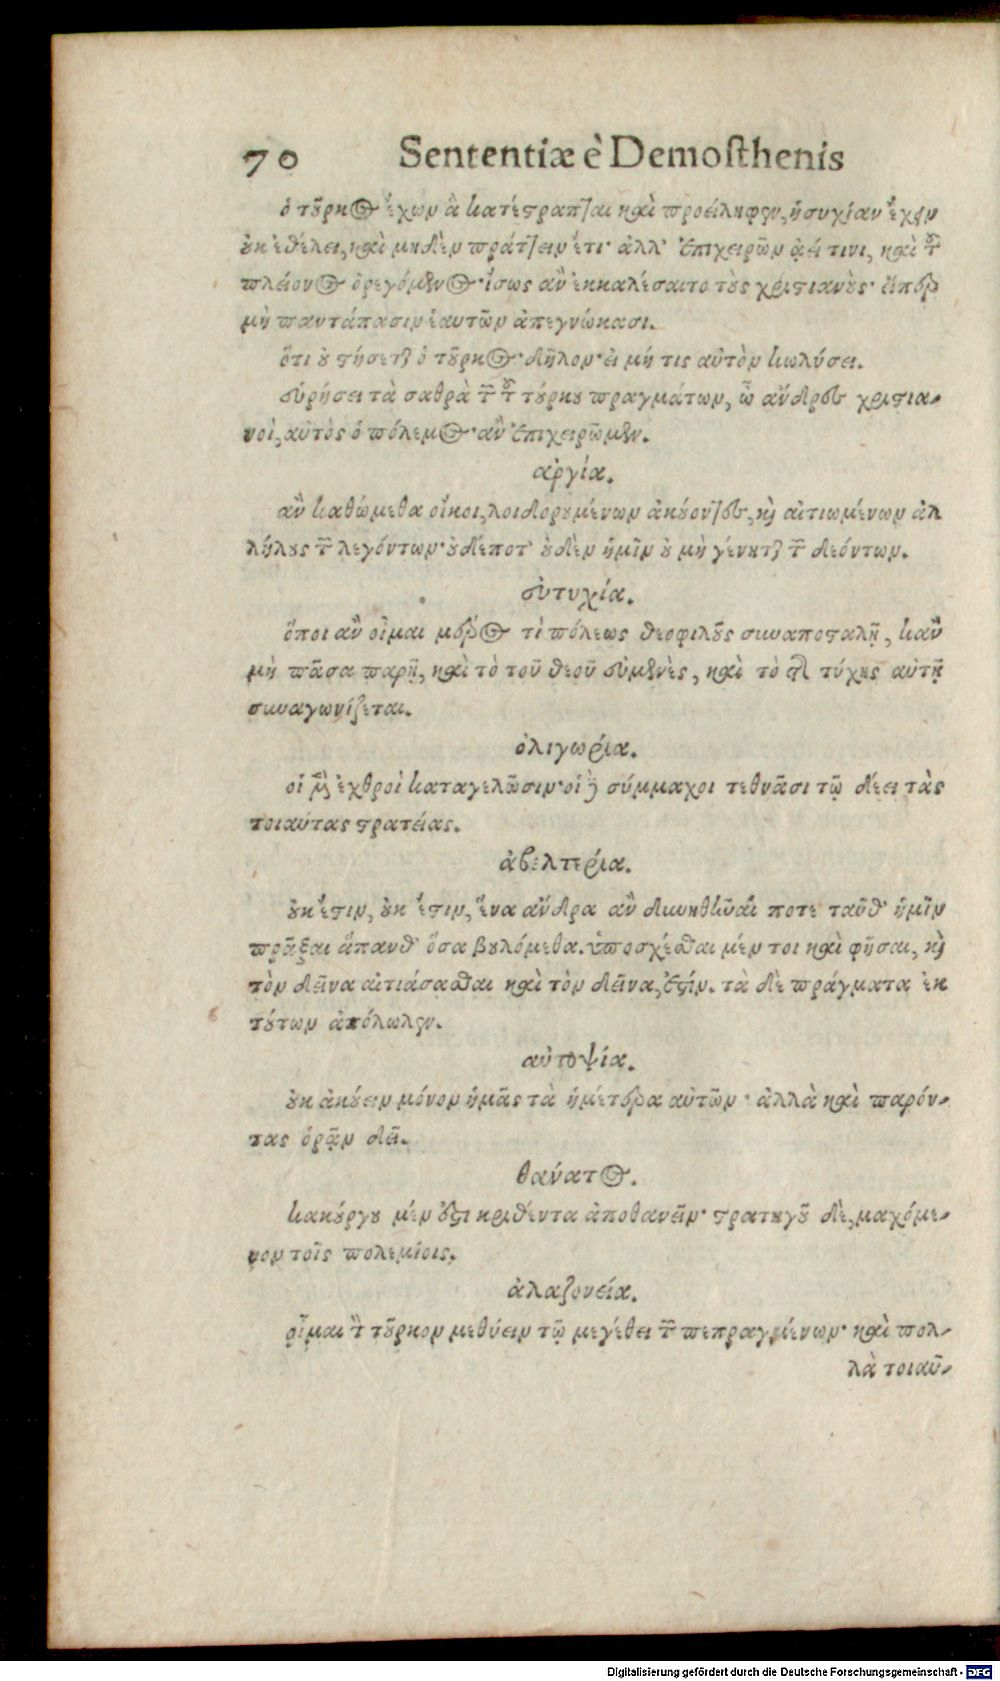 70 Sententiæ è Demosthenis
ὁ τοῦρκος ἔχων ἃ κατέστραπται καὶ προείληφεν, ἡσυχίαν ἔχειν
οὐκ ἐθέλει, καὶ μηδὲν πράττειν ἔτι· ἀλλ' ἐπιχειρῶν ἀεί τινι, καὶ τοῦ
πλείονος ὀρεγόμενος· ἴσως ἂν ἐκκαλέσαιτο τοὺς χριστιανούς· εἴπερ
μὴ παντάπασιν ἑαυτῶν ἀπεγνώκασι.
ὅτι οὐ στήσεται ὁ τοῦρκος· δῆλον· εἰ μή τις αὐτὸν κωλύσει.
εὑρήσει τὰ σαθρὰ τῶν τοῦ τούρκου πραγμάτων, ὦ ἄνδρες χριστια-
νοί, αὐτὸς ὁ πόλεμος· ἂν ἐπιχειρῶμεν.
ἀργία.
ἂν καθώμεθα οἴκοι, λοιδορουμένων ἀκούοντες, καὶ αἰτιωμένων ἀλ
λήλους τῶν λεγόντων· οὐδέποτ' οὐδὲν ἡμῖν οὐ μὴ γένηται τῶν δεόντων.
εὐτυχία.
ὅποι ἂν οἶμαι μέρος τὶ πόλεως θεοφιλοῦς συναποσταλῇ, κἂν
μὴ πᾶσα παρῇ, καὶ τὸ τοῦ θεοῦ εὐμενὲς, καὶ τὸ τῆς τύχης αὐτῇ
συναγωνίζεται.
ὀλιγωρία.
οἱ μὲν ἐχθροὶ καταγελῶσιν· οἱ δὲ σύμμαχοι τεθνᾶσι τῷ δέει τὰς
τοιαύτας στρατείας.
ἀβελτερία.
οὐκ ἔστιν, οὐκ ἔστιν, ἕνα ἄνδρα ἂν δυνηθῆναί ποτε ταῦθ' ἡμῖν
πρᾶξαι ἅπανθ' ὅσα βουλόμεθα. ὑποσχέσθαι μέν τοι καὶ φῆσαι, καὶ
τὸν δεῖνα αἰτιάσασθαι καὶ τὸν δεῖνα, ἐστίν. τὰ δὲ πράγματα ἐκ
τούτων ἀπόλωλεν.
αὐτοψία.
οὐκ ἀκούειν μόνον ἡμᾶς τὰ ἡμέτερα αὐτῶν· ἀλλὰ καὶ παρόν-
τας ὁρᾷν δεῖ.
θάνατος.
κακούργου μέν ἐστι κριθέντα ἀποθανεῖν· στρατηγοῦ δὲ, μαχόμε-
νον τοῖς πολεμίοις.
ἀλαζονεία.
οἶμαι τὸν τοῦρκον μεθύειν τῷ μεγέθει τῶν πεπραγμένων· καὶ πολ-
λὰ τοιαῦ-
Digitalisierung gefördert durch die Deutsche Forschungsgemeinschaft - DFG